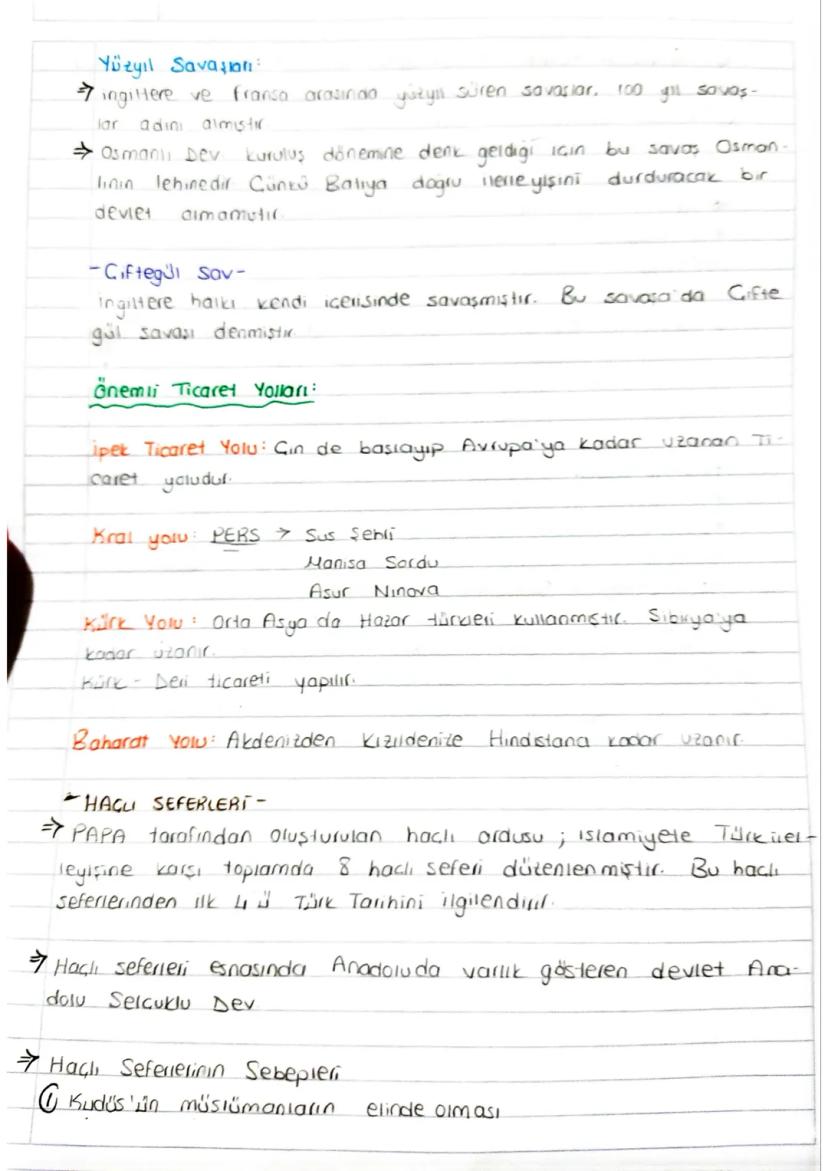 Yüzyıl Savaşları:
⇒ ingiltere ve fransa arasında yüzyıl süren savaşlar. 100 yıl savaş-
lar adını almıştır
⇒ Osmanlı Dev kuruluş dönemine denk geldiği için bu savaş Osman-
lının lehinedir Çünkü Batıya doğru ilerleyişini durduracak bir
devlet olmamıştır.
- Çiftegül Sav -
ingiltere halkı kendi içerisinde savaşmıştır. Bu savaşa'da Çifte
gül savaşı denmiştir.
Önemli Ticaret Yolları:
ipek Ticaret Yolu: Çin de başlayıp Avrupa'ya kadar uzanan Ti-
caret yoludur.
Kral yolu: PERS → Sus Şehri
Manisa Sardu
Asur Ninova
Kürk Yolu: Orta Asya da Hazar türkleri kullanmıştır. Sibirya'ya
kadar uzanır.
Kürk - Deri ticareti yapılır.
Baharat Yolu: Akdenizden Kızıldenize Hindistana kadar uzanır.
- HAÇLI SEFERLERİ -
⇒ PAPA tarafından oluşturulan haçlı ordusu ; islamiyete Türk iler-
leyişine karşı toplamda 8 haçlı seferi düzenlenmiştir. Bu haçlı
seferlerinden ilk 4 ü Türk Tarihini ilgilendirir.
⇒ Haçlı seferleri esnasında Anadoluda varlık gösteren devlet Ana-
dolu Selçuklu Dev
⇒ Haçlı Seferlerinin Sebepleri
① Kudüs'ün müslümanların elinde olması